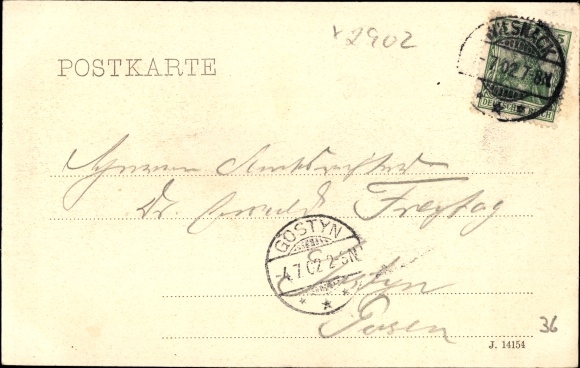 2902
POSTKARTE
WILSNACK
7.02.7-8N.
DEUTSCHES REICH
Herrn Amtsrichter
Dr. Freytag
GOSTYN
4.7.02.2-3N.
Gostyn
Posen
36
J. 14154